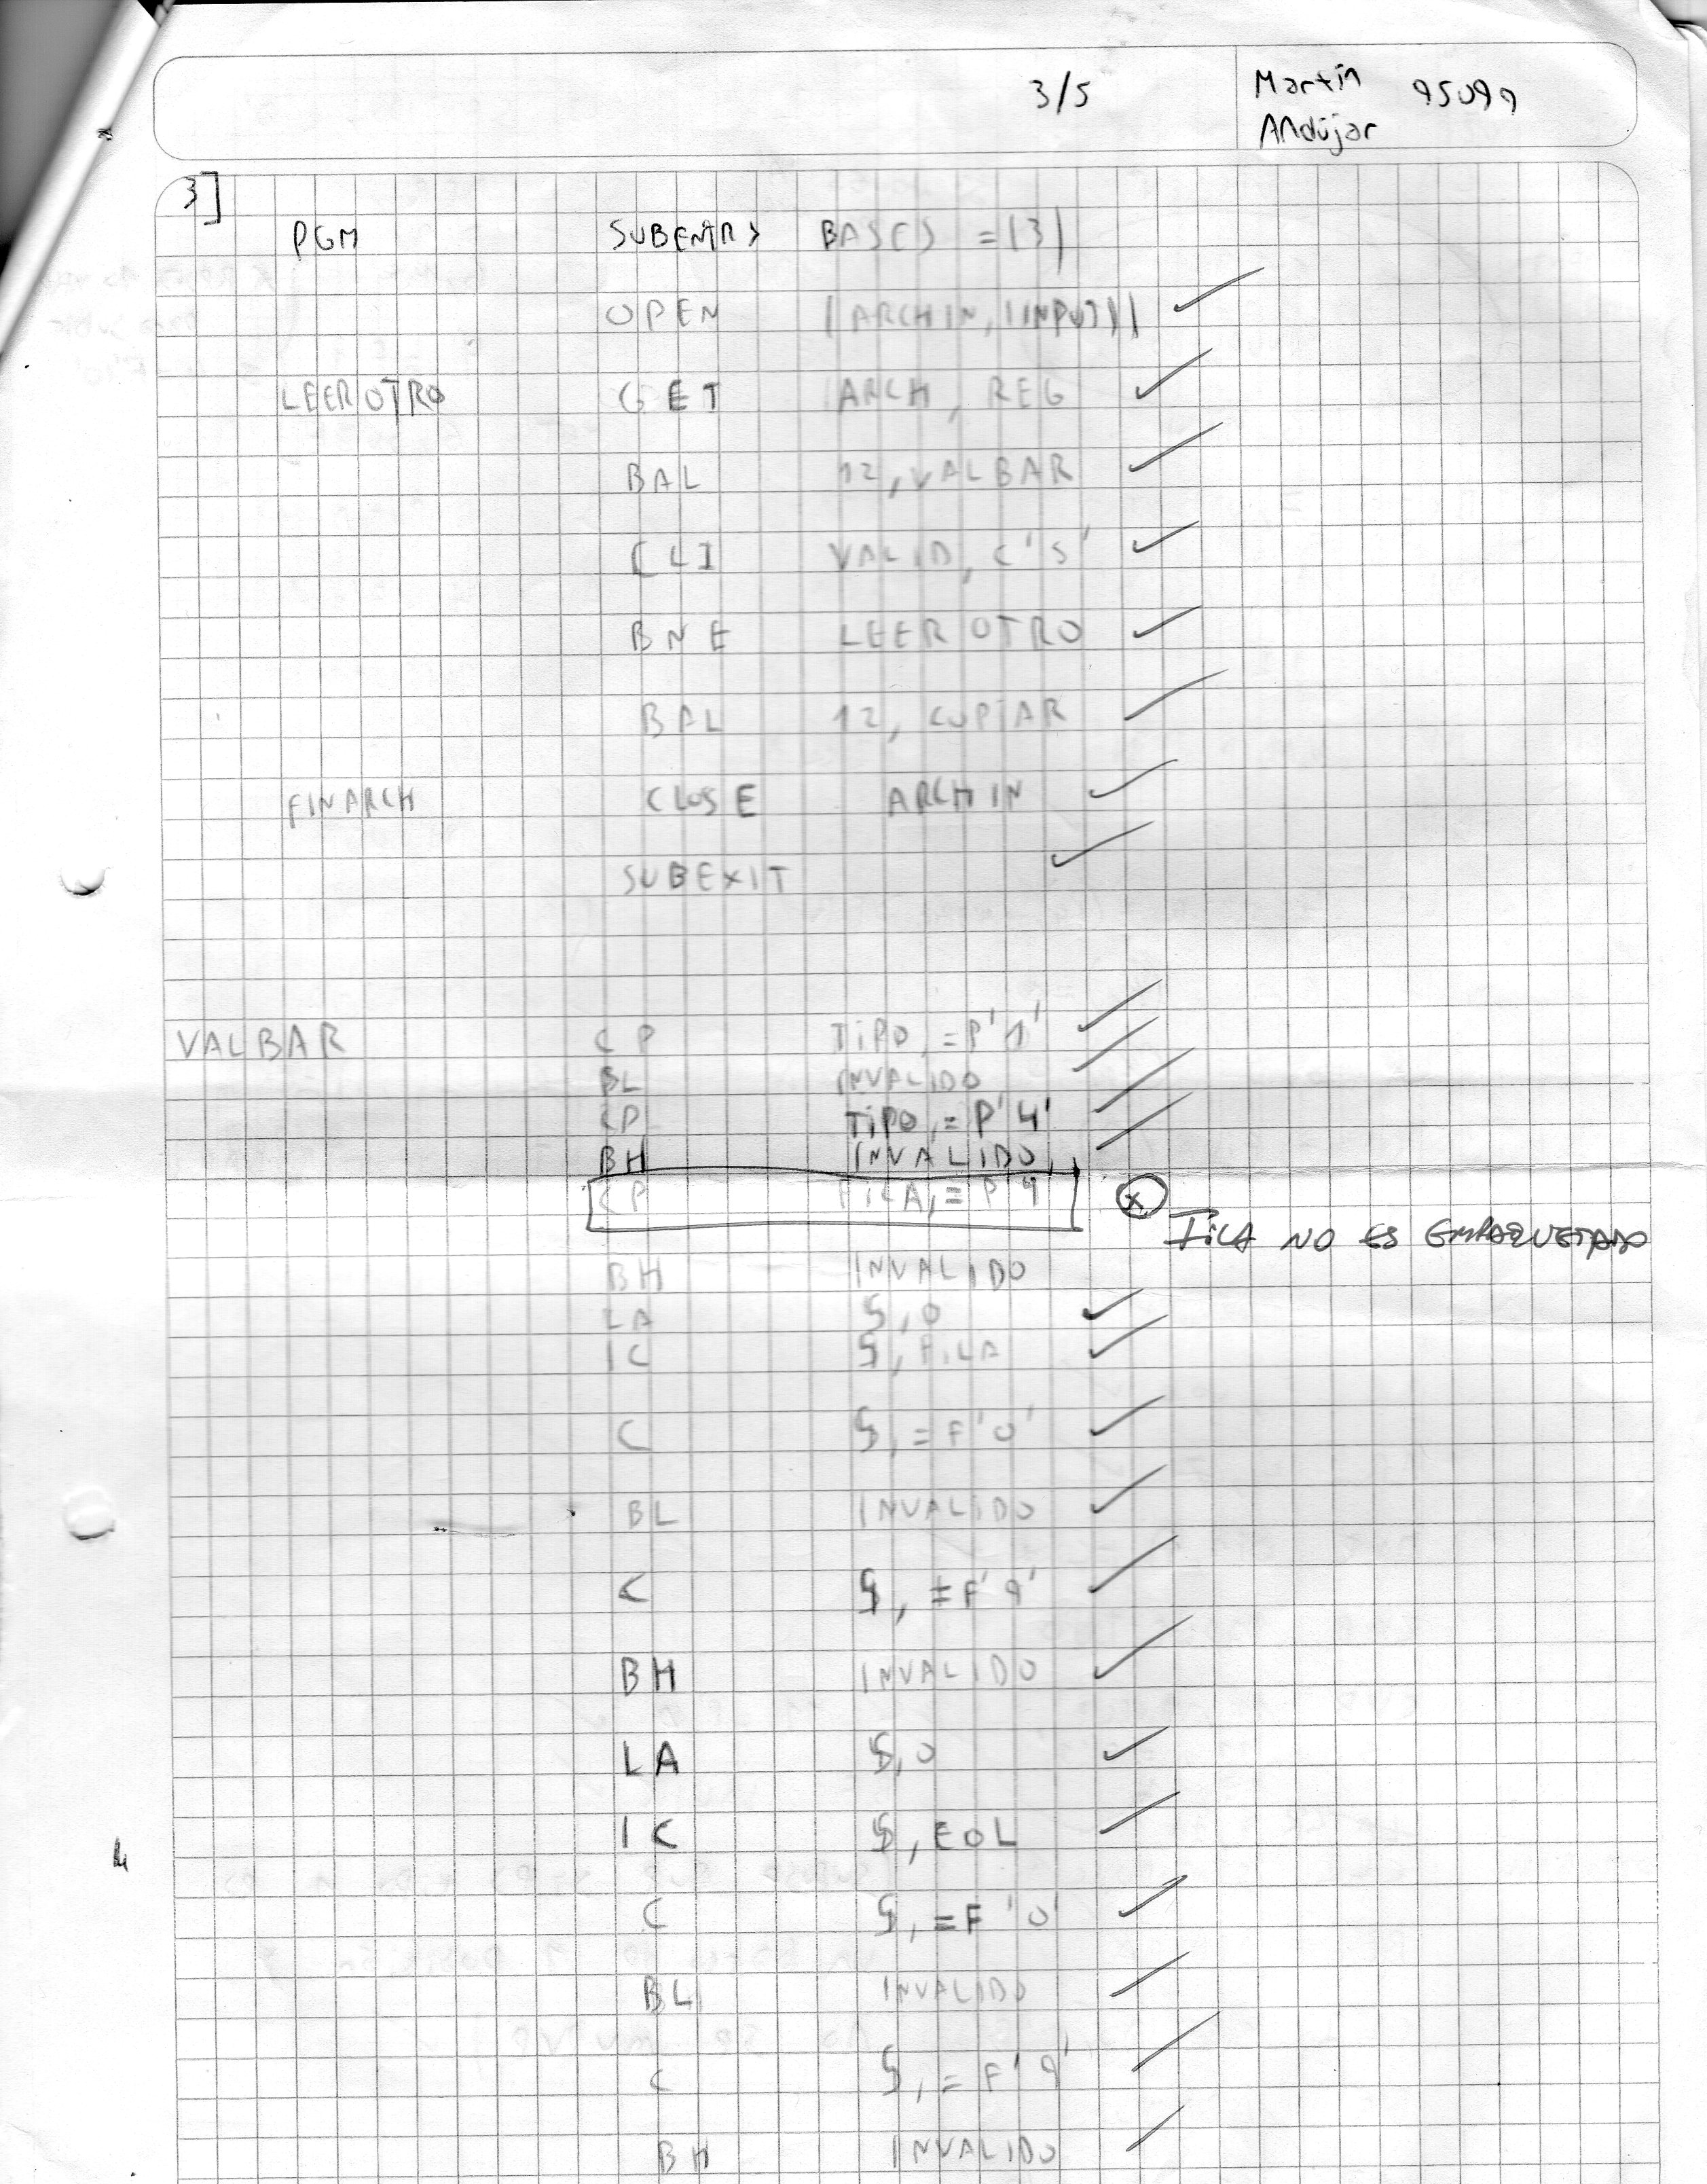 3/5 Martín 95099
Andújar
3]
PGM SUBENTRY BASES =(3)
OPEN (ARCHIN,(INPUT))
LEEROTRO GET ARCH, REG
BAL 12,VALBAR
CLI VALID, C'S'
BNE LEEROTRO
BAL 12, COPIAR
FINARCH CLOSE ARCHIN
SUBEXIT
VALBAR CP TIPO,=P'1'
BL INVALIDO
CP TIPO,=P'4'
BH INVALIDO
CP FILA,=P'9'
FILA NO ES EMPAQUETADO
BH INVALIDO
LA 5,0
IC 5,FILA
C 5,=F'0'
BL INVALIDO
C 5,=F'9'
BH INVALIDO
LA 5,0
IC 5,COL
C 5,=F'0'
BL INVALIDO
C 5,=F'9'
BH INVALIDO